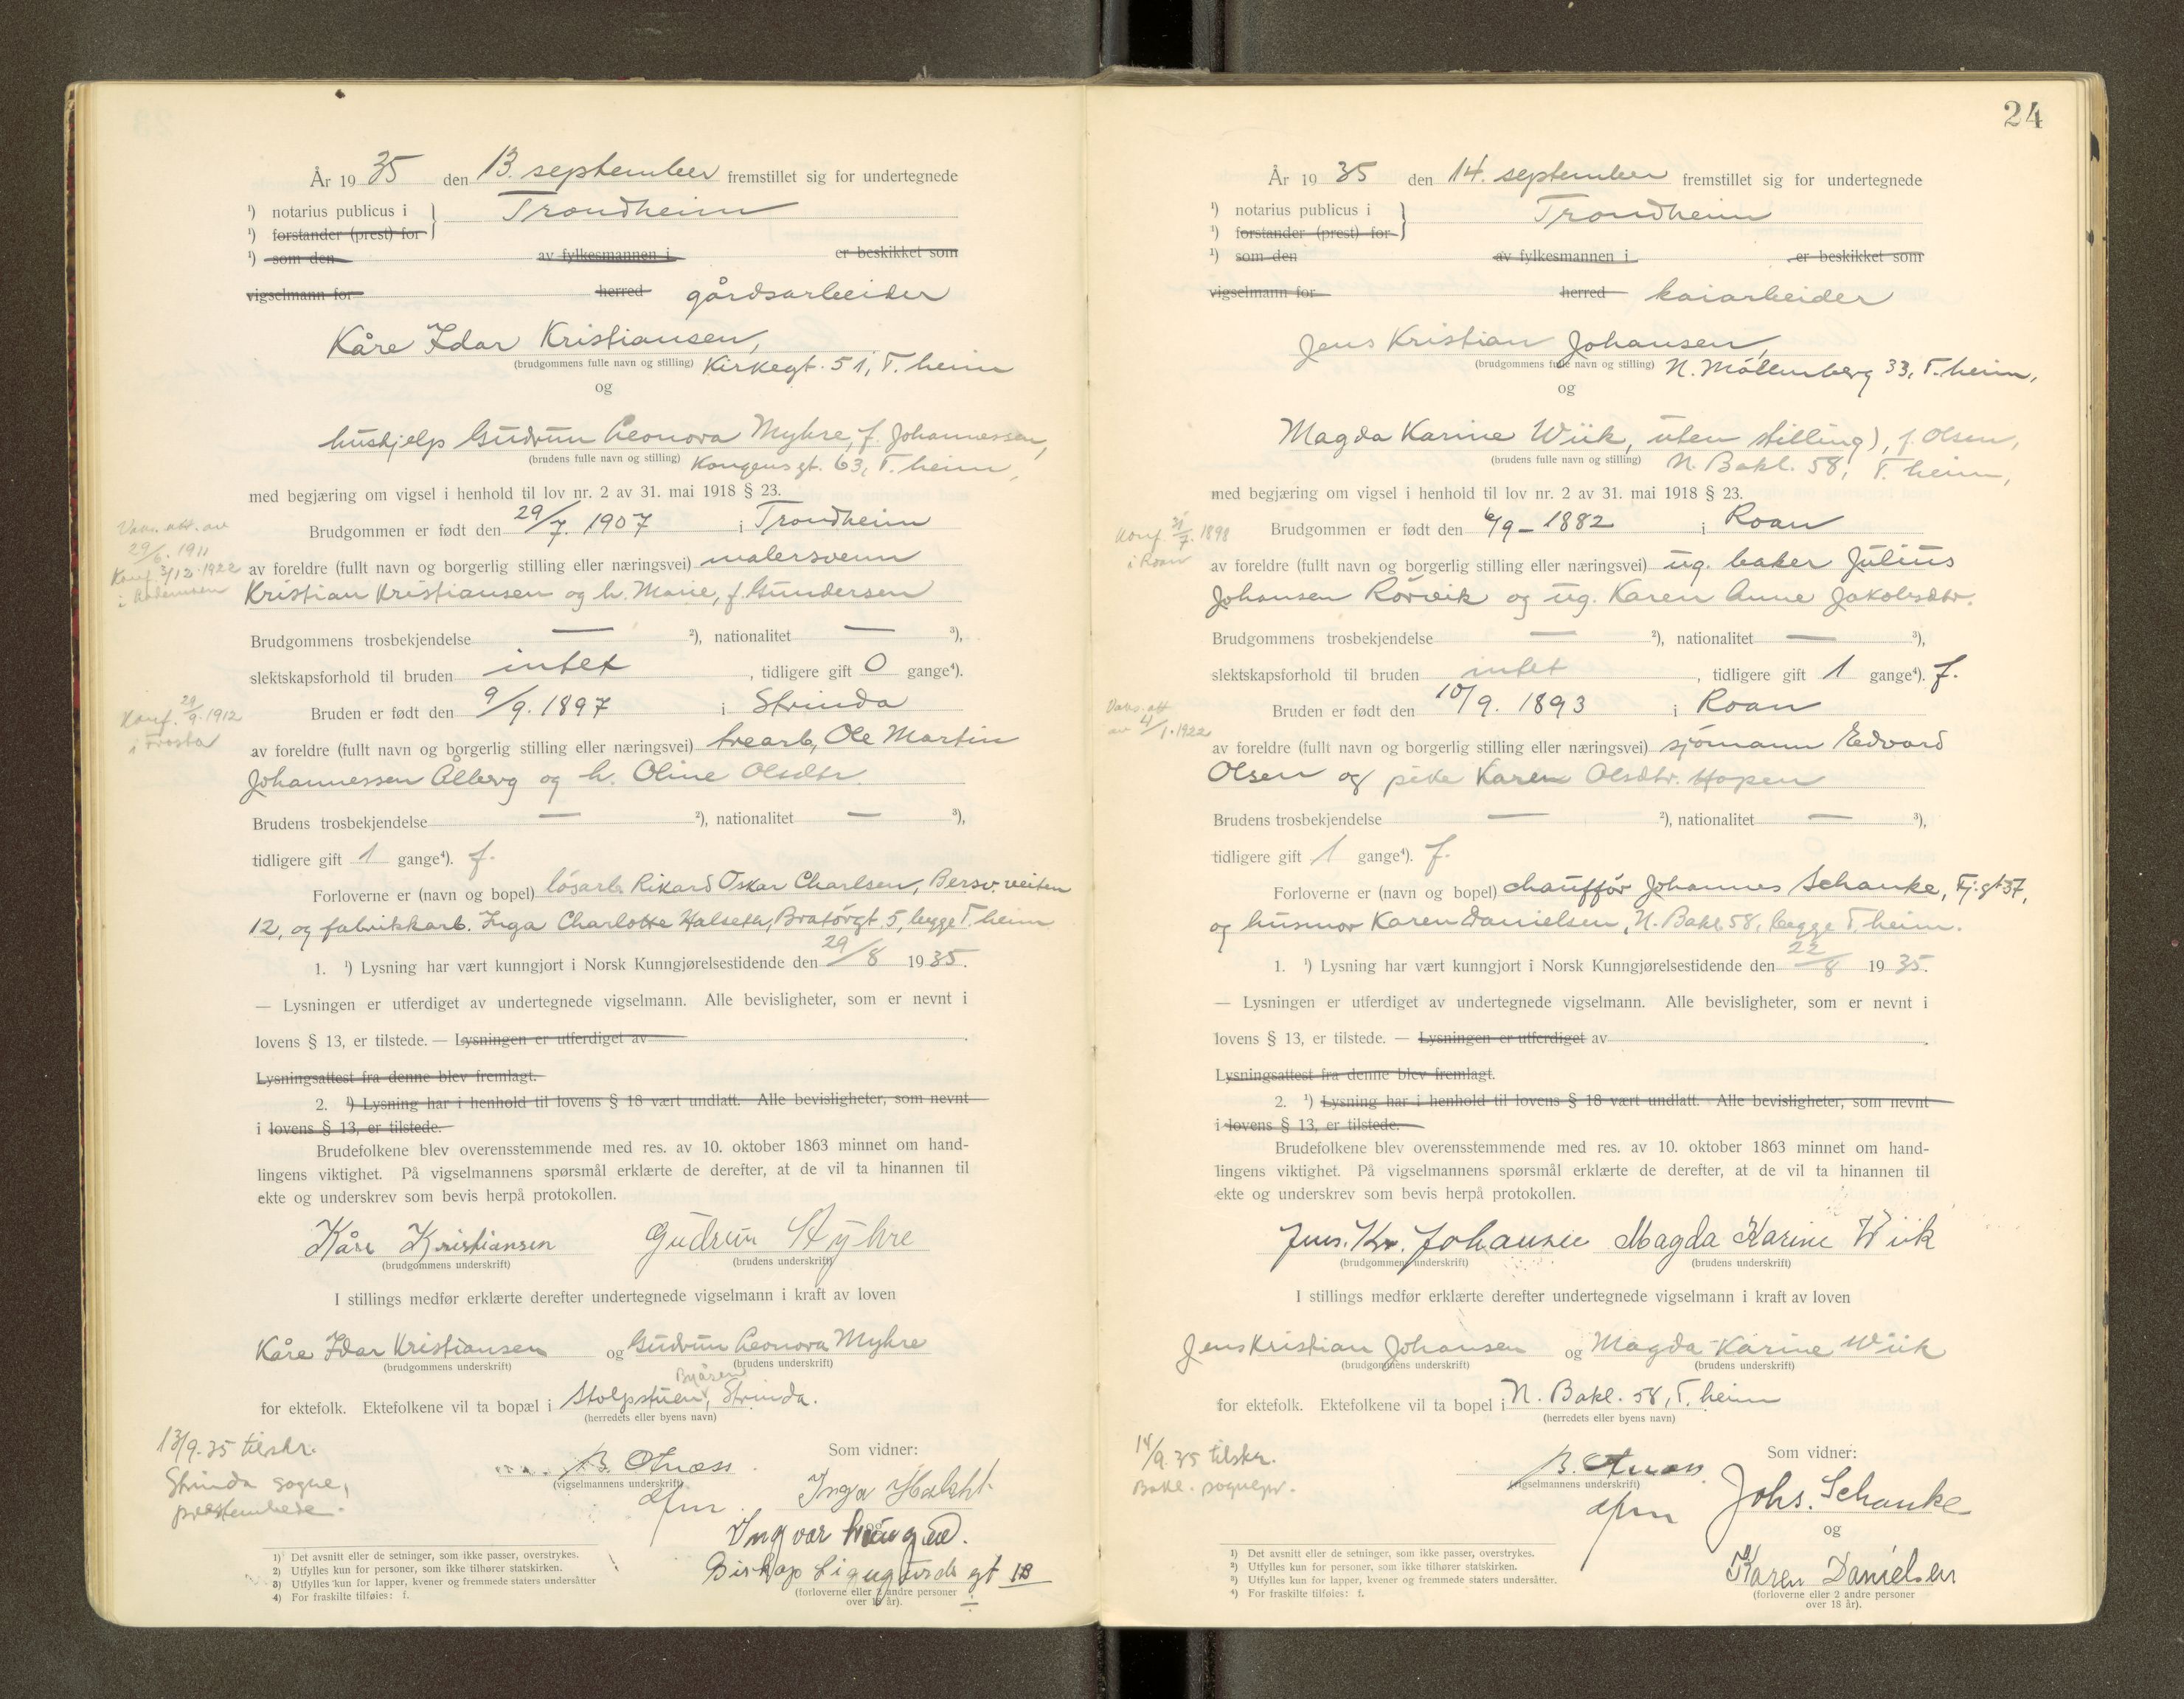 År 19 35 den 13. september fremstillet sig for undertegnede
¹) notarius publicus i } Trondheim
¹) forstander (prest) for
¹) som den av fylkesmannen i er beskikket som
vigselmann for herred gårdsarbeider
Kåre Idar Kristiansen,
(brudgommens fulle navn og stilling) Kirkegt. 51, T.heim
og
hushjelp Gudrun Leonora Myhre, f. Johannessen,
(brudens fulle navn og stilling) Kongensgt. 63, T.heim,
med begjæring om vigsel i henhold til lov nr. 2 av 31. mai 1918 § 23.
Vaks. att. av
29/6. 1911
Konf. 3/12. 1922
i
Brudgommen er født den 29/7. 1907 i Trondheim
av foreldre (fullt navn og borgerlig stilling eller næringsvei) malersvenn
Kristian Kristiansen og h. Marie, f. Gundersen
Brudgommens trosbekjendelse — ²), nationalitet — ³),
slektskapsforhold til bruden intet, tidligere gift 0 gange⁴).
Konf. 29/9. 1912
i Frosta
Bruden er født den 9/9. 1897 i Strinda
av foreldre (fullt navn og borgerlig stilling eller næringsvei) trearb, Ole Martin
Johannessen Ålberg og h. Oline Olsdtr.
Brudens trosbekjendelse — ²), nationalitet — ³),
tidligere gift 1 gange⁴). f.
Forloverne er (navn og bopel) løsarb. Rikard Oskar Charlsen, Bersv.veiten
12, og fabrikkarb. Inga Charlotte Halseth, Bratørgt. 5, begge T.heim
1. ¹) Lysning har vært kunngjort i Norsk Kunngjørelsestidende den 29/8 1935.
— Lysningen er utferdiget av undertegnede vigselmann. Alle bevisligheter, som er nevnt i
lovens § 13, er tilstede. — Lysningen er utferdiget av
Lysningsattest fra denne blev fremlagt.
2. ¹) Lysning har i henhold til lovens § 18 vært undlatt. Alle bevisligheter, som nevnt
i lovens § 13, er tilstede.
Brudefolkene blev overensstemmende med res. av 10. oktober 1863 minnet om hand-
lingens viktighet. På vigselmannens spørsmål erklærte de derefter, at de vil ta hinannen til
ekte og underskrev som bevis herpå protokollen.
Kåre Kristiansen Gudrun Myhre
(brudgommens underskrift) (brudens underskrift)
I stillings medfør erklærte derefter undertegnede vigselmann i kraft av loven
Kåre Idar Kristiansen og Gudrun Leonora Myhre
(brudgommens underskrift) (brudens underskrift)
Byåsen
for ektefolk. Ektefolkene vil ta bopæl i Stolpstuen, Strinda.
(herredets eller byens navn)
13/9.35 tilskr.
Strinda sogne,
presteembede.
Som vidner:
(vigselmannens underskrift)
Inga Halseth.
og
Ingvar
Biskop Sigurds gt 18
(forloverne eller 2 andre personer
over 18 år).
1) Det avsnitt eller de setninger, som ikke passer, overstrykes.
2) Utfylles kun for personer, som ikke tilhører statskirken.
3) Utfylles kun for lapper, kvener og fremmede staters undersåtter
4) For fraskilte tilføies: f.
24
År 19 35 den 14. september fremstillet sig for undertegnede
¹) notarius publicus i } Trondheim
¹) forstander (prest) for
¹) som den av fylkesmannen i er beskikket som
vigselmann for herred kaiarbeider
Jens Kristian Johansen,
(brudgommens fulle navn og stilling) N. Möllenberg 33, T.heim,
og
Magda Karine Wiik, uten stilling), f. Olsen,
(brudens fulle navn og stilling) N. Bakl. 58, T.heim,
med begjæring om vigsel i henhold til lov nr. 2 av 31. mai 1918 § 23.
Konf. 31/7. 1898
i Roan
Brudgommen er født den 6/9 – 1882 i Roan
av foreldre (fullt navn og borgerlig stilling eller næringsvei) ug. baker Julius
Johansen Rörvik og ug. Karen Anne Jakobsdtr.
Brudgommens trosbekjendelse — ²), nationalitet — ³),
slektskapsforhold til bruden intet, tidligere gift 1 gange⁴). f.
Vaks. att
av 4/1. 1922
Bruden er født den 10/9. 1893 i Roan
av foreldre (fullt navn og borgerlig stilling eller næringsvei) sjömann Edvard
Olsen og pike Karen Olsdtr. Hopen
Brudens trosbekjendelse — ²), nationalitet — ³),
tidligere gift 1 gange⁴). f.
Forloverne er (navn og bopel) chauffør Johannes Schanke, Fj.gt 37,
og husmor Karen Danielsen, N. Bakl. 58, begge T.heim.
1. ¹) Lysning har vært kunngjort i Norsk Kunngjørelsestidende den 22/8 1935.
— Lysningen er utferdiget av undertegnede vigselmann. Alle bevisligheter, som er nevnt i
lovens § 13, er tilstede. — Lysningen er utferdiget av
Lysningsattest fra denne blev fremlagt.
2. ¹) Lysning har i henhold til lovens § 18 vært undlatt. Alle bevisligheter, som nevnt
i lovens § 13, er tilstede.
Brudefolkene blev overensstemmende med res. av 10. oktober 1863 minnet om hand-
lingens viktighet. På vigselmannens spørsmål erklærte de derefter, at de vil ta hinannen til
ekte og underskrev som bevis herpå protokollen.
Jens. Kr. Johansen Magda Karine Wiik
(brudgommens underskrift) (brudens underskrift)
I stillings medfør erklærte derefter undertegnede vigselmann i kraft av loven
Jens Kristian Johansen og Magda Karine Wiik
(brudgommens underskrift) (brudens underskrift)
for ektefolk. Ektefolkene vil ta bopel i N. Bakl. 58, T.heim
(herredets eller byens navn)
14/9.35 tilskr.
Bakl. sognepr.
Som vidner:
(vigselmannens underskrift)
Johs. Schanke
og
Karen Danielsen
(forloverne eller 2 andre personer
over 18 år).
¹) Det avsnitt eller de setninger, som ikke passer, overstrykes.
²) Utfylles kun for personer, som ikke tilhører statskirken.
³) Utfylles kun for lapper, kvener og fremmede staters undersåtter.
⁴) For fraskilte tilføies: f.